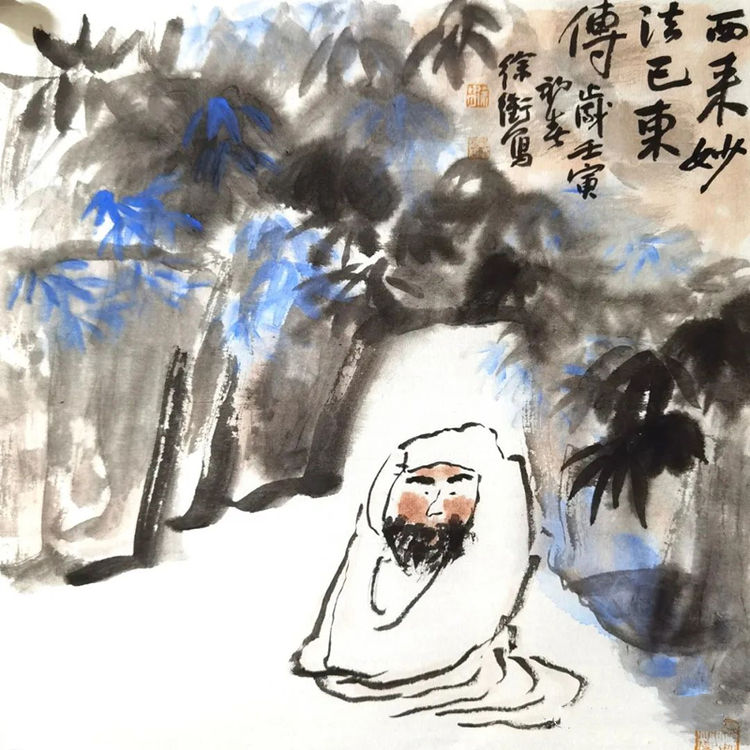 西来妙
法已東
傳歲壬寅
初春
徐衛寫